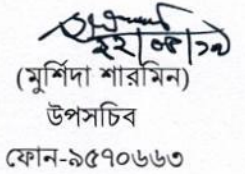 ২২/০৪/১৯
(মুর্শিদা শারমিন)
উপসচিব
ফোন-৯৫৭০৬৬৩